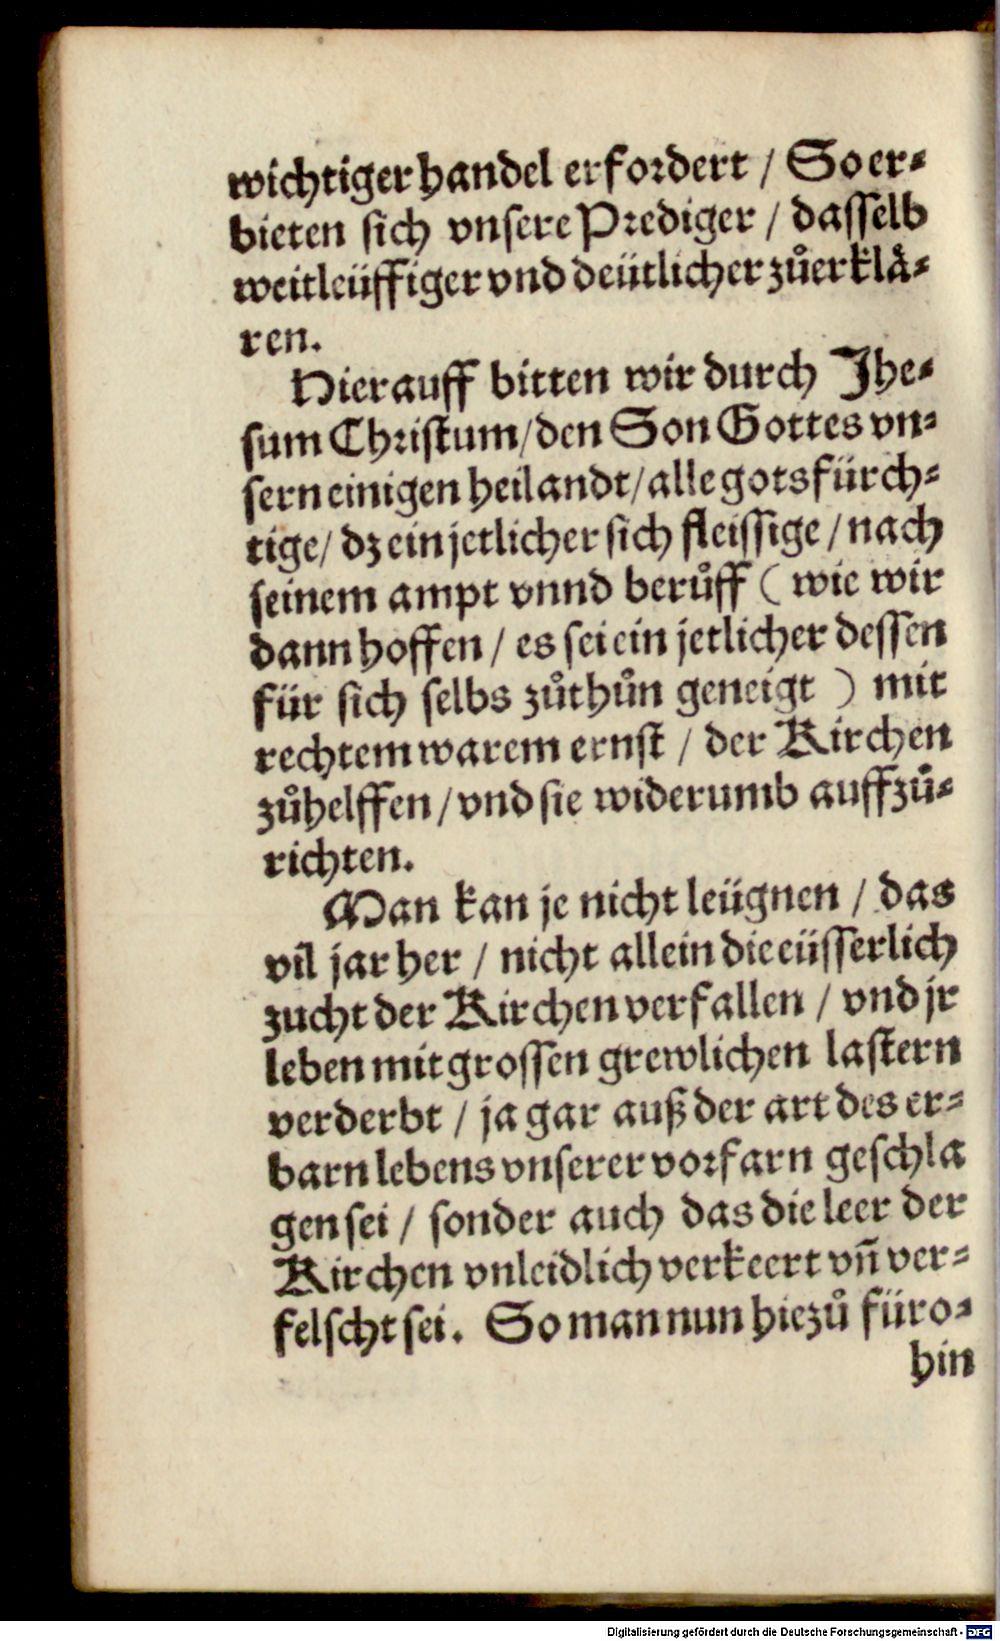 wichtiger handel erfordert / So er⸗
bieten sich vnsere Prediger / dasselb
weitleüffiger vnd deütlicher zůerklä⸗
ren.
Hierauff bitten wir durch Jhe⸗
sum Christum/den Son Gottes vn⸗
sern einigen heilandt/alle gotsfürch⸗
tige/ dz ein jetlicher sich fleissige / nach
seinem ampt vnnd berůff ( wie wir
dann hoffen / es sei ein jetlicher dessen
für sich selbs zůthůn geneigt ) mit
rechtem warem ernst / der Kirchen
zůhelffen/vnd sie widerumb auffzů⸗
richten.
Man kan je nicht leügnen / das
vil jar her / nicht allein die eüsserlich
zucht der Kirchen verfallen / vnd jr
leben mit grossen grewlichen lastern
verderbt / ja gar auß der art des er⸗
barn lebens vnserer vorfarn geschla
gen sei / sonder auch das die leer der
Kirchen vnleidlich verkeert vñ ver⸗
felscht sei. So man nun hiezů füro⸗
hin
Digitalisierung gefördert durch die Deutsche Forschungsgemeinschaft - DFG